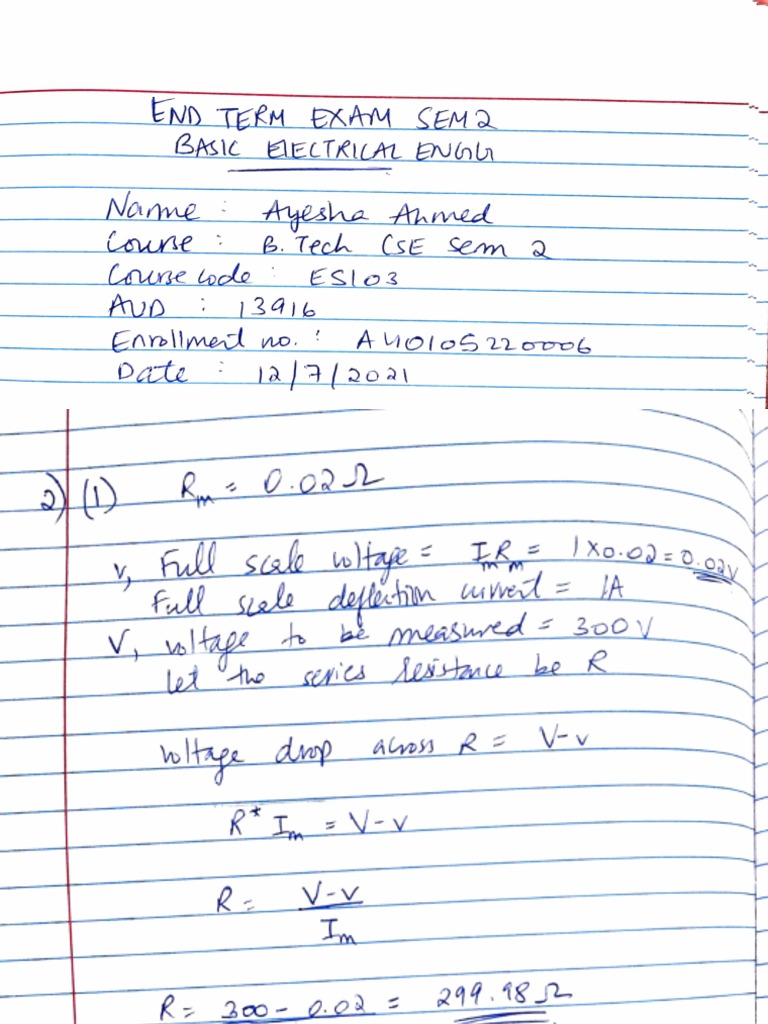 END TERM EXAM SEM 2
BASIC ELECTRICAL ENGG
Name : Ayesha Ahmed
Course : B. Tech CSE Sem 2
Course code : ES103
AUD : 13916
Enrollment no. : A40105220006
Date : 12/7/2021
2) (1) Rm = 0.02 Ω
v, Full scale voltage = ImRm = 1×0.02 = 0.02V
Full scale deflection current = 1A
V, voltage to be measured = 300 V
let the series resistance be R
Voltage drop across R = V-v
R* Im = V-v
R = V-v
Im
R = 300 - 0.02 = 299.98 Ω